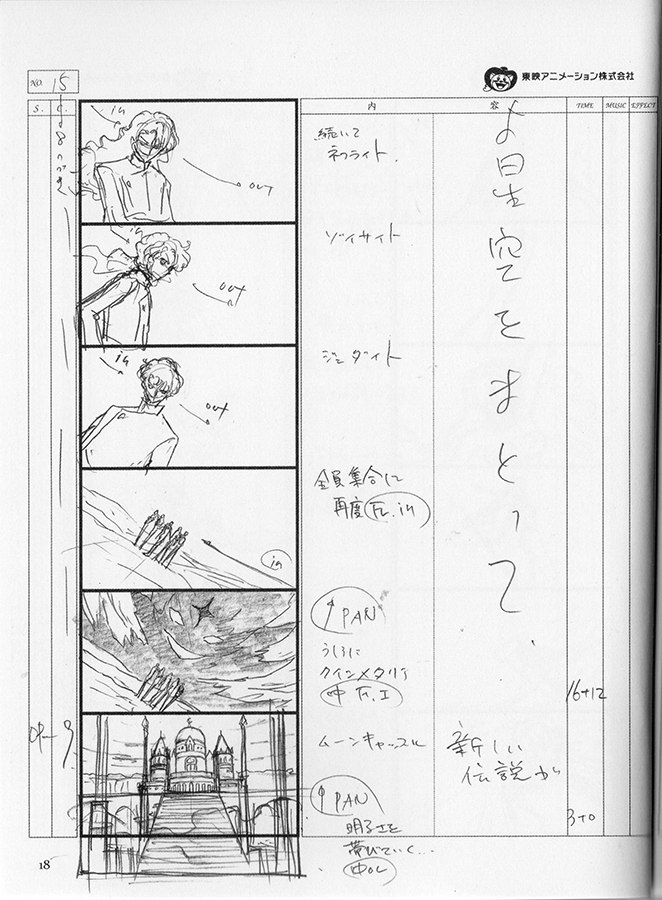 東映アニメーション株式会社
NO. 15
S. C.
内容
TIME MUSIC EFFECT
in
out
続いて
ネフライト.
in
out
ゾイサイト
in
out
ジェダイト
in
全員集合に
再度 F.in
よ星空をまとって
PAN
うしろに
クインメタリア
F.I
16+12
OP-9
ムーンキャッスル
新しい
伝説が
PAN
明るさを
帯びていく…
3+0
18